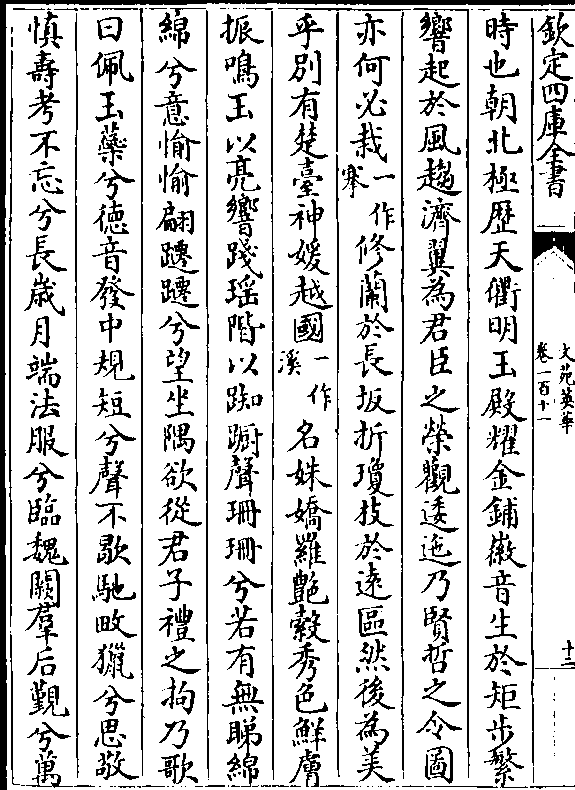 欽定四庫全書
文苑英華
卷一百十一
十二
時也朝北極歴天衢明玉殿耀金鋪徽音生於矩步繁
響起於風趨濟翼為君臣之榮觀逶迤乃賢哲之令圖
亦何必栽一作搴修蘭於長坂折瓊枝於遠區然後為美
乎别有楚臺神媛越國一作溪名姝嬌羅艶縠秀色鮮膚
振鳴玉以亮響踐瑶階以踟蹰聲珊珊兮若有無睇綿
綿兮意愉愉翩躚躚兮望坐隅欲從君子禮之拘乃歌
曰佩玉蘂兮徳音發中規短兮聲不歇馳畋獵兮思敬
慎壽考不忘兮長歳月端法服兮臨魏闕羣后覲兮萬